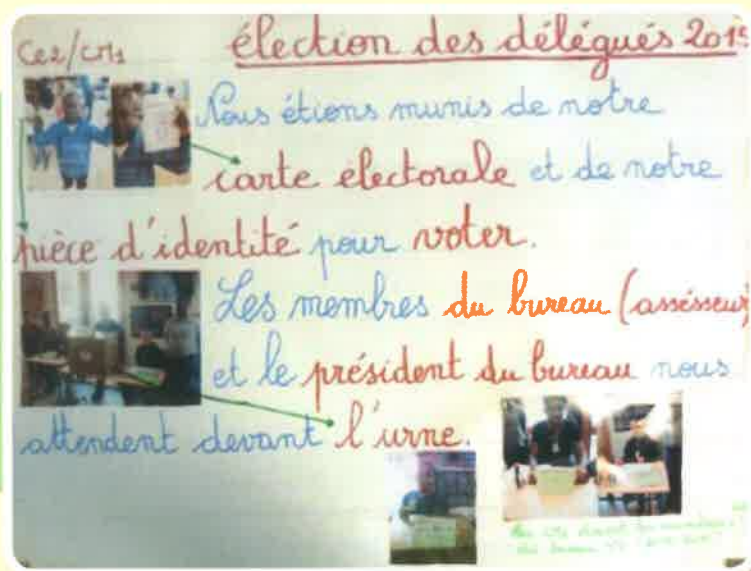 Ce2/CM1
élection des délégués 2015
Nous étions munis de notre
carte électorale et de notre
pièce d'identité pour voter.
Les membres du bureau (assésseur)
et le président du bureau nous
attendent devant l'urne.